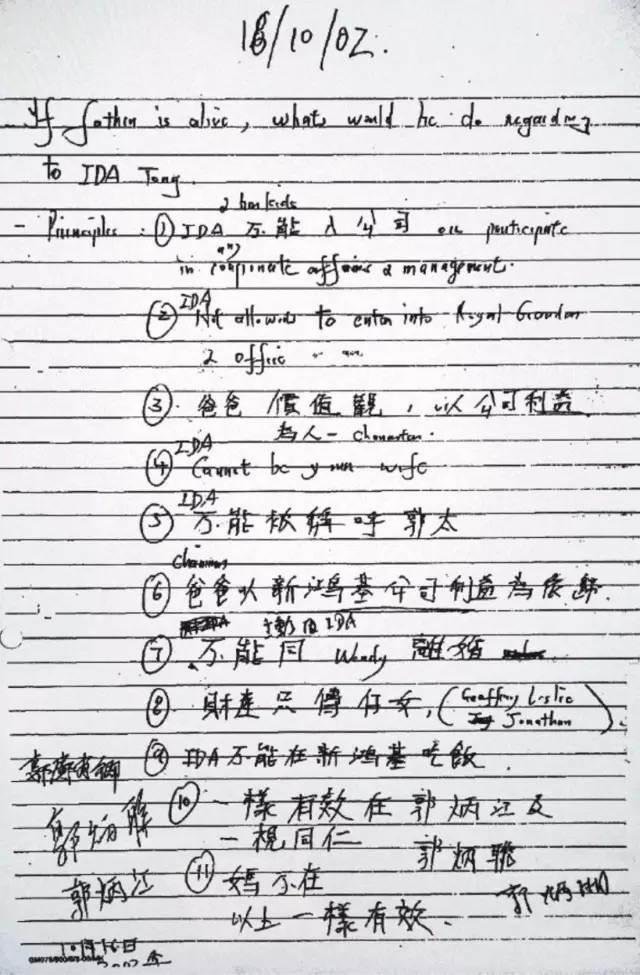 18/10/02.
If father is alive, what would he do regarding
to IDA Tong.
2 her kids
- Principles: ① IDA 不能入公司 or participate
any
in corporate affairs & management.
IDA
② Not allowed to enter into Royal Garden
& office
③ 爸爸價值觀，以公司利益
為人 - character.
IDA
④ Cannot be your wife
IDA
⑤ 不能被稱呼郭太
chairman
⑥ 爸爸以新鴻基公司利益為依歸.
IDA
⑦ 不能同 Wendy 離婚
⑧ 財產只傳仔女, (Geoffrey Leslie
Jonathan).
⑨ IDA不能在新鴻基吃飯.
⑩ 一樣有效在郭炳江及
郭炳聯
一視同仁
⑪ 媽不在
以上一樣有效.
郭鄺肖卿
郭炳聯
郭炳江
郭炳湘
10月16日
2002年